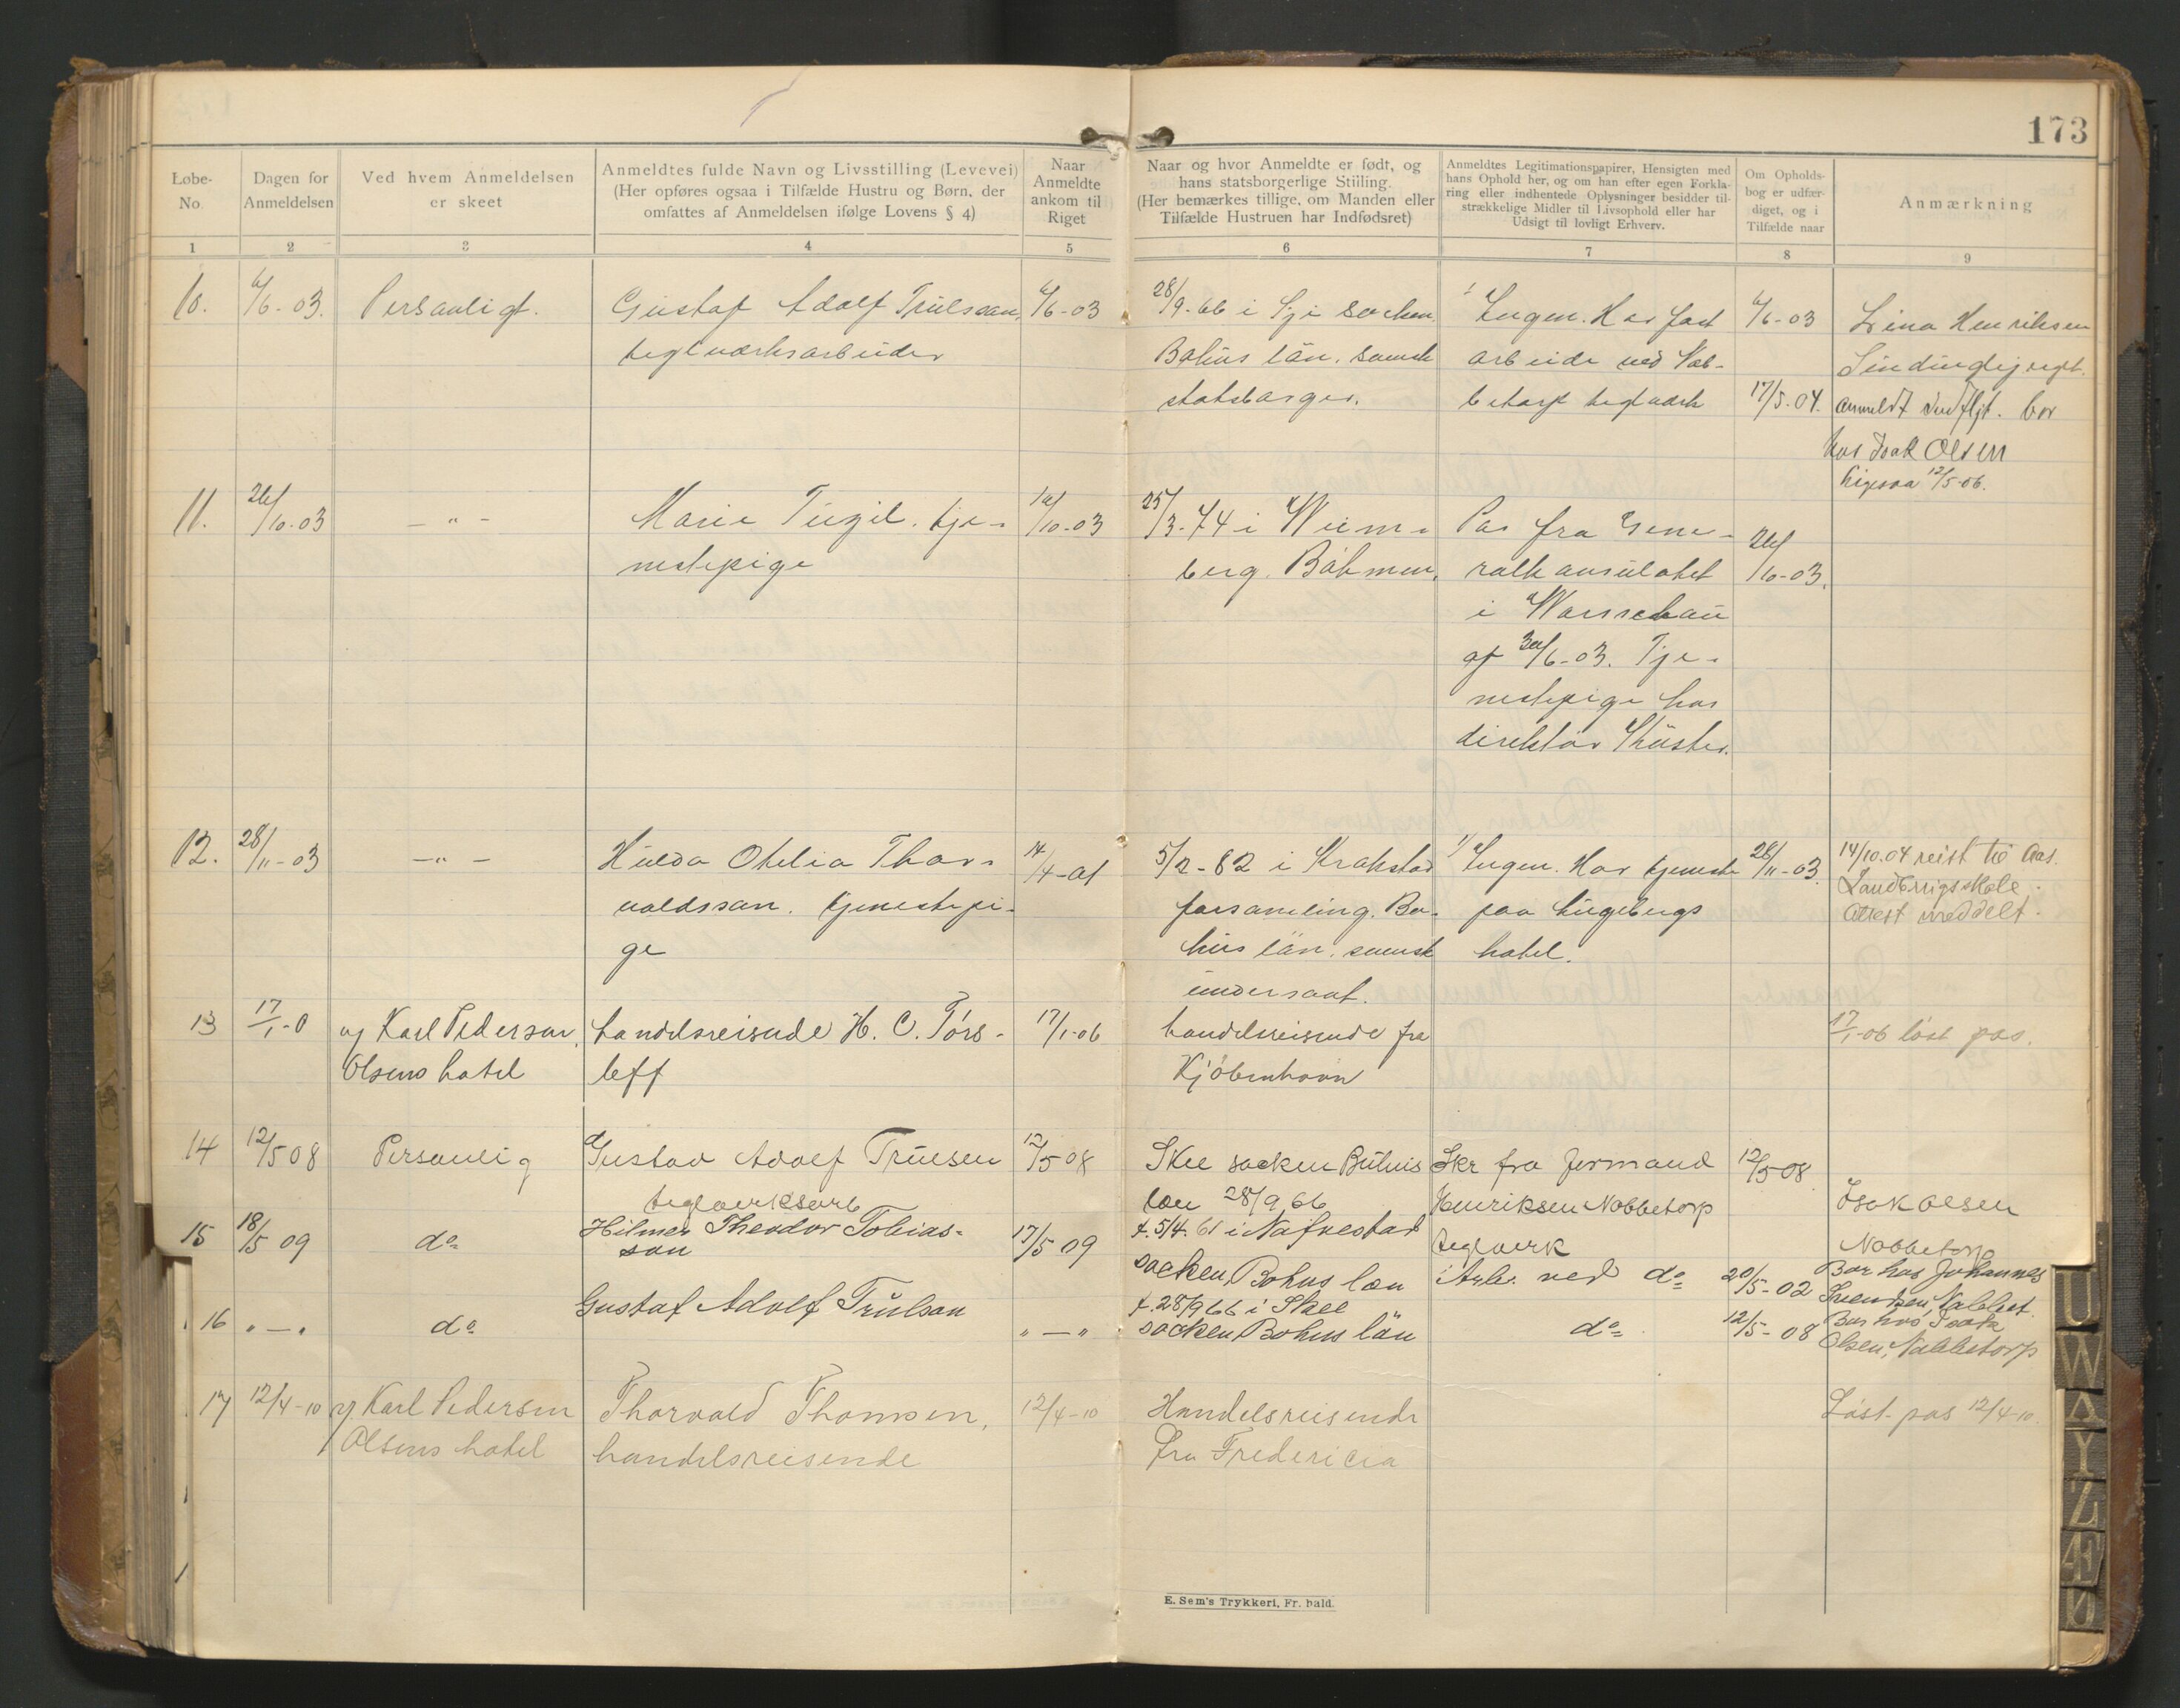 173
Løbe-
No.
Dagen for
Anmeldelsen
Ved hvem Anmeldelsen
er skeet
Anmeldtes fulde Navn og Livsstilling (Levevei)
(Her opføres ogsaa i Tilfælde Hustru og Børn, der
omfattes af Anmeldelsen ifølge Lovens § 4)
Naar
Anmeldte
ankom til
Riget
Naar og hvor Anmeldte er født, og
hans statsborgerlige Stilling.
(Her bemærkes tillige, om Manden eller
Tilfælde Hustruen har Indfødsret)
Anmeldtes Legitimationspapirer, Hensigten med
hans Ophold her, og om han efter egen Forkla-
ring eller indhentede Oplysninger besidder til-
strækkelige Midler til Livsophold eller har
Udsigt til lovligt Erhverv.
Om Opholds-
bog er udfær-
diget, og i
Tilfælde naar
Anmærkning
1 2 3 4 5 6 7 8 9
10.
Personligt.
Gustaf Adolf Trulsson,
teglværksarbeider
28/9-66 i socken
Bohus län. svensk
statsborger.
Ingen. Har fast
arbeide ved Nab-
betorp teglværk
17/5.04.
Lina Henriksen
anmeldt indflyt. bor
hos Isak Olsen
ligesaa 12/5-06.
11.
26/10-03
- " -
Marie tje-
nestepige
25/3-74 i
berg. Böhmen.
Pas fra Gene-
ralkonsulatet
i Warschau
af 30/6-03. Tje-
nestepige hos
direktör
26/10-03.
12.
28/11-03
- " -
Hulda Otelia Thor-
valdsson. tjenestepi-
ge
14/4-01
5/2-82 i Krokstad
forsamling. Bo-
hus län. svensk
undersaat.
1/ Ingen. Har tjeneste
paa
hotel.
28/11-03.
14/10.04 reist til Aas.
Landbrugsskole.
Attest meddelt.
13
17/1-0
af Karl Pedersen,
Olsens hotel
handelsreisende H. C. Törs-
leff
17/1-06
handelsreisende fra
Kjöbenhavn
17/1-06 löst pas.
14
12/5 08
Personlig
Gustav Adolf Trulsen
teglverksarb
12/5 08
Skee socken Buhuis
län 28/9 66
Skr fra Jermand
Henriksen Nabbetorp
teglverk
12/5-08
Isak Olsen
Nabbetorp
15
18/5 09
do
Hilmer Theodor Tobias-
son
17/5 09
f. 5/4. 61 i Nafvestad
socken, Bohus län
i Arb. ved do
20/5-02
Bor hos Johannes
Svendsen, Nabbet.
16
" — "
do
Gustaf Adolf Trulson
" — "
f. 28/9 66 i Skee
socken, Bohus län
do
12/5-08
Bor hos Isak
Olsen, Nabbetorp
17
12/4-10
af Karl Pedersen
Olsens hotel
Thorvald Thomsen,
handelsreisende
12/4-10
Handelsreisende
fra Fredericia
Löst pas 12/4 10.
E. Sem's Trykkeri, Fr. hald.
U
W
Y
Z
Æ
Ø